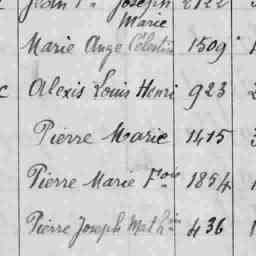 Jean F.s Joseph 2122
Marie
Marie Ange Célestin 1509
Alexis Louis Henri 923
Pierre Marie 1415
Pierre Marie F.ois 1854
Pierre Joseph Math.in 436